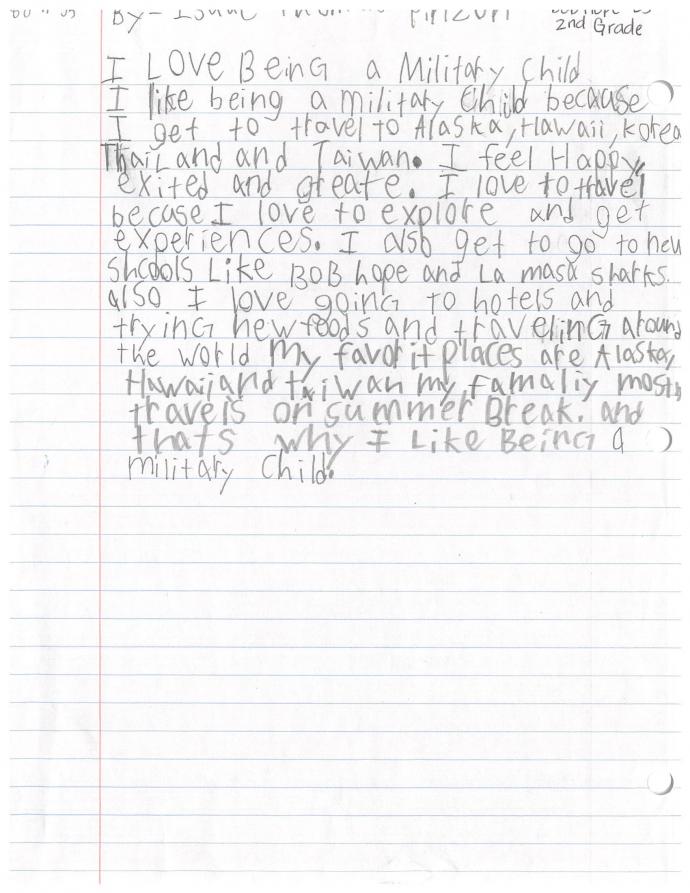 By- Isaac
2nd Grade
I LOVE BeinG a Military Child
I like being a military Child because
I get to travel to Alaska, Hawaii, Korea
ThaiLand and Taiwan. I feel Happy,
exited and greate. I love to travel
becase I love to explore and get
experiences. I also get to go to new
shcools Like BOB hope and La masa sharks.
also I love going to hotels and
trying new foods and traveling around
the world My favorit places are Alaska,
Hawaii and taiwan my famaliy mostly
travels on summer Break. and
thats why I Like BeinG a
military Child.